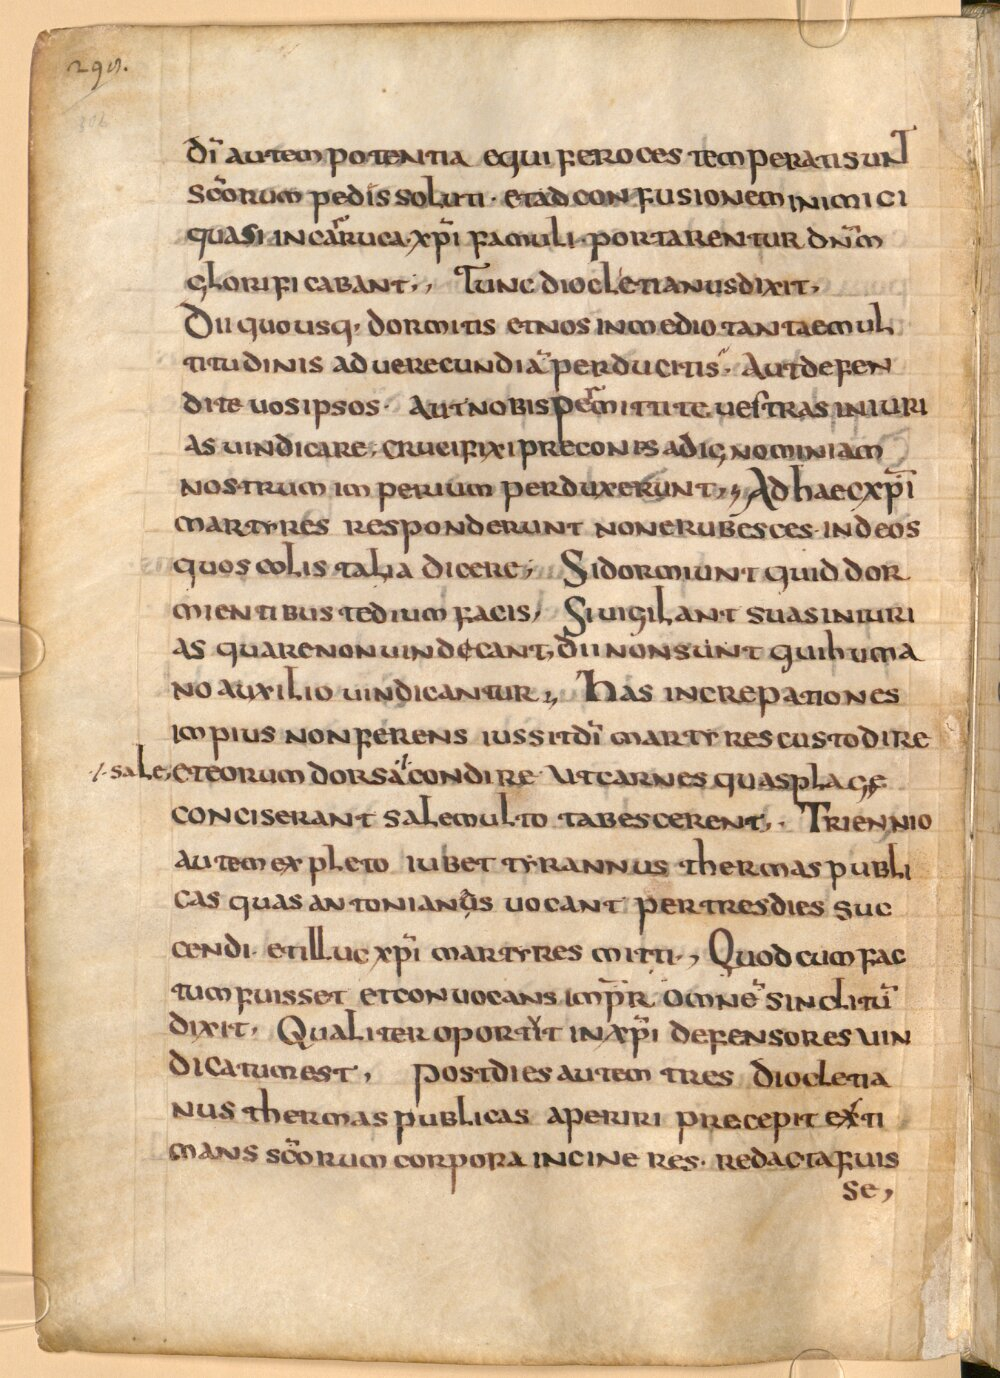 298.
306
dī autem potentia equi feroces temperati sunt
scōrum pedis soluti · et ad confusionem inimici
quasi in carruca · xp̄i famuli · portarentur dnm̄
glorificabant ; , Tunc diocletianus dixit ,
Dii quousq · dormitis et nos in medio tantae mul
titudinis ad uerecundiā perducitis · Aut defen
dite uos ipsos · Aut nobis permittite uestras iniuri
as uindicare , crucifixi precones ad ignominiam
nostrum imperium perduxerunt ,, Ad haec xp̄i
martyres responderunt non erubesces in deos
quos colis talia dicere ; Si dormiunt quid dor
mientibus tedium facis , Si uigilant suas iniuri
as quare non uindicant , dii non sunt qui huma
no auxilio uindicantur ,, Has increpationes
impius non ferens iussit dī martyres custodire
·/· sale , et eorum dorsa ·/· condire · ut carnes quas plagę
conciserant sale multo tabescerent , · Triennio
autem expleto iubet tyrannus thermas publi
cas quas antonianas uocant per tres dies suc
cendi · et illuc xp̄i martyres mitti · , Quod cum fac
tum fuisset et conuocans imp̄r omnē sinclitū
dixit , Qualiter oportuit in xp̄i defensores uin
dicatum est , post dies autem tres diocletia
nus thermas publicas aperiri precepit exti
mans scōrum corpora in cineres · redacta fuis
se ,